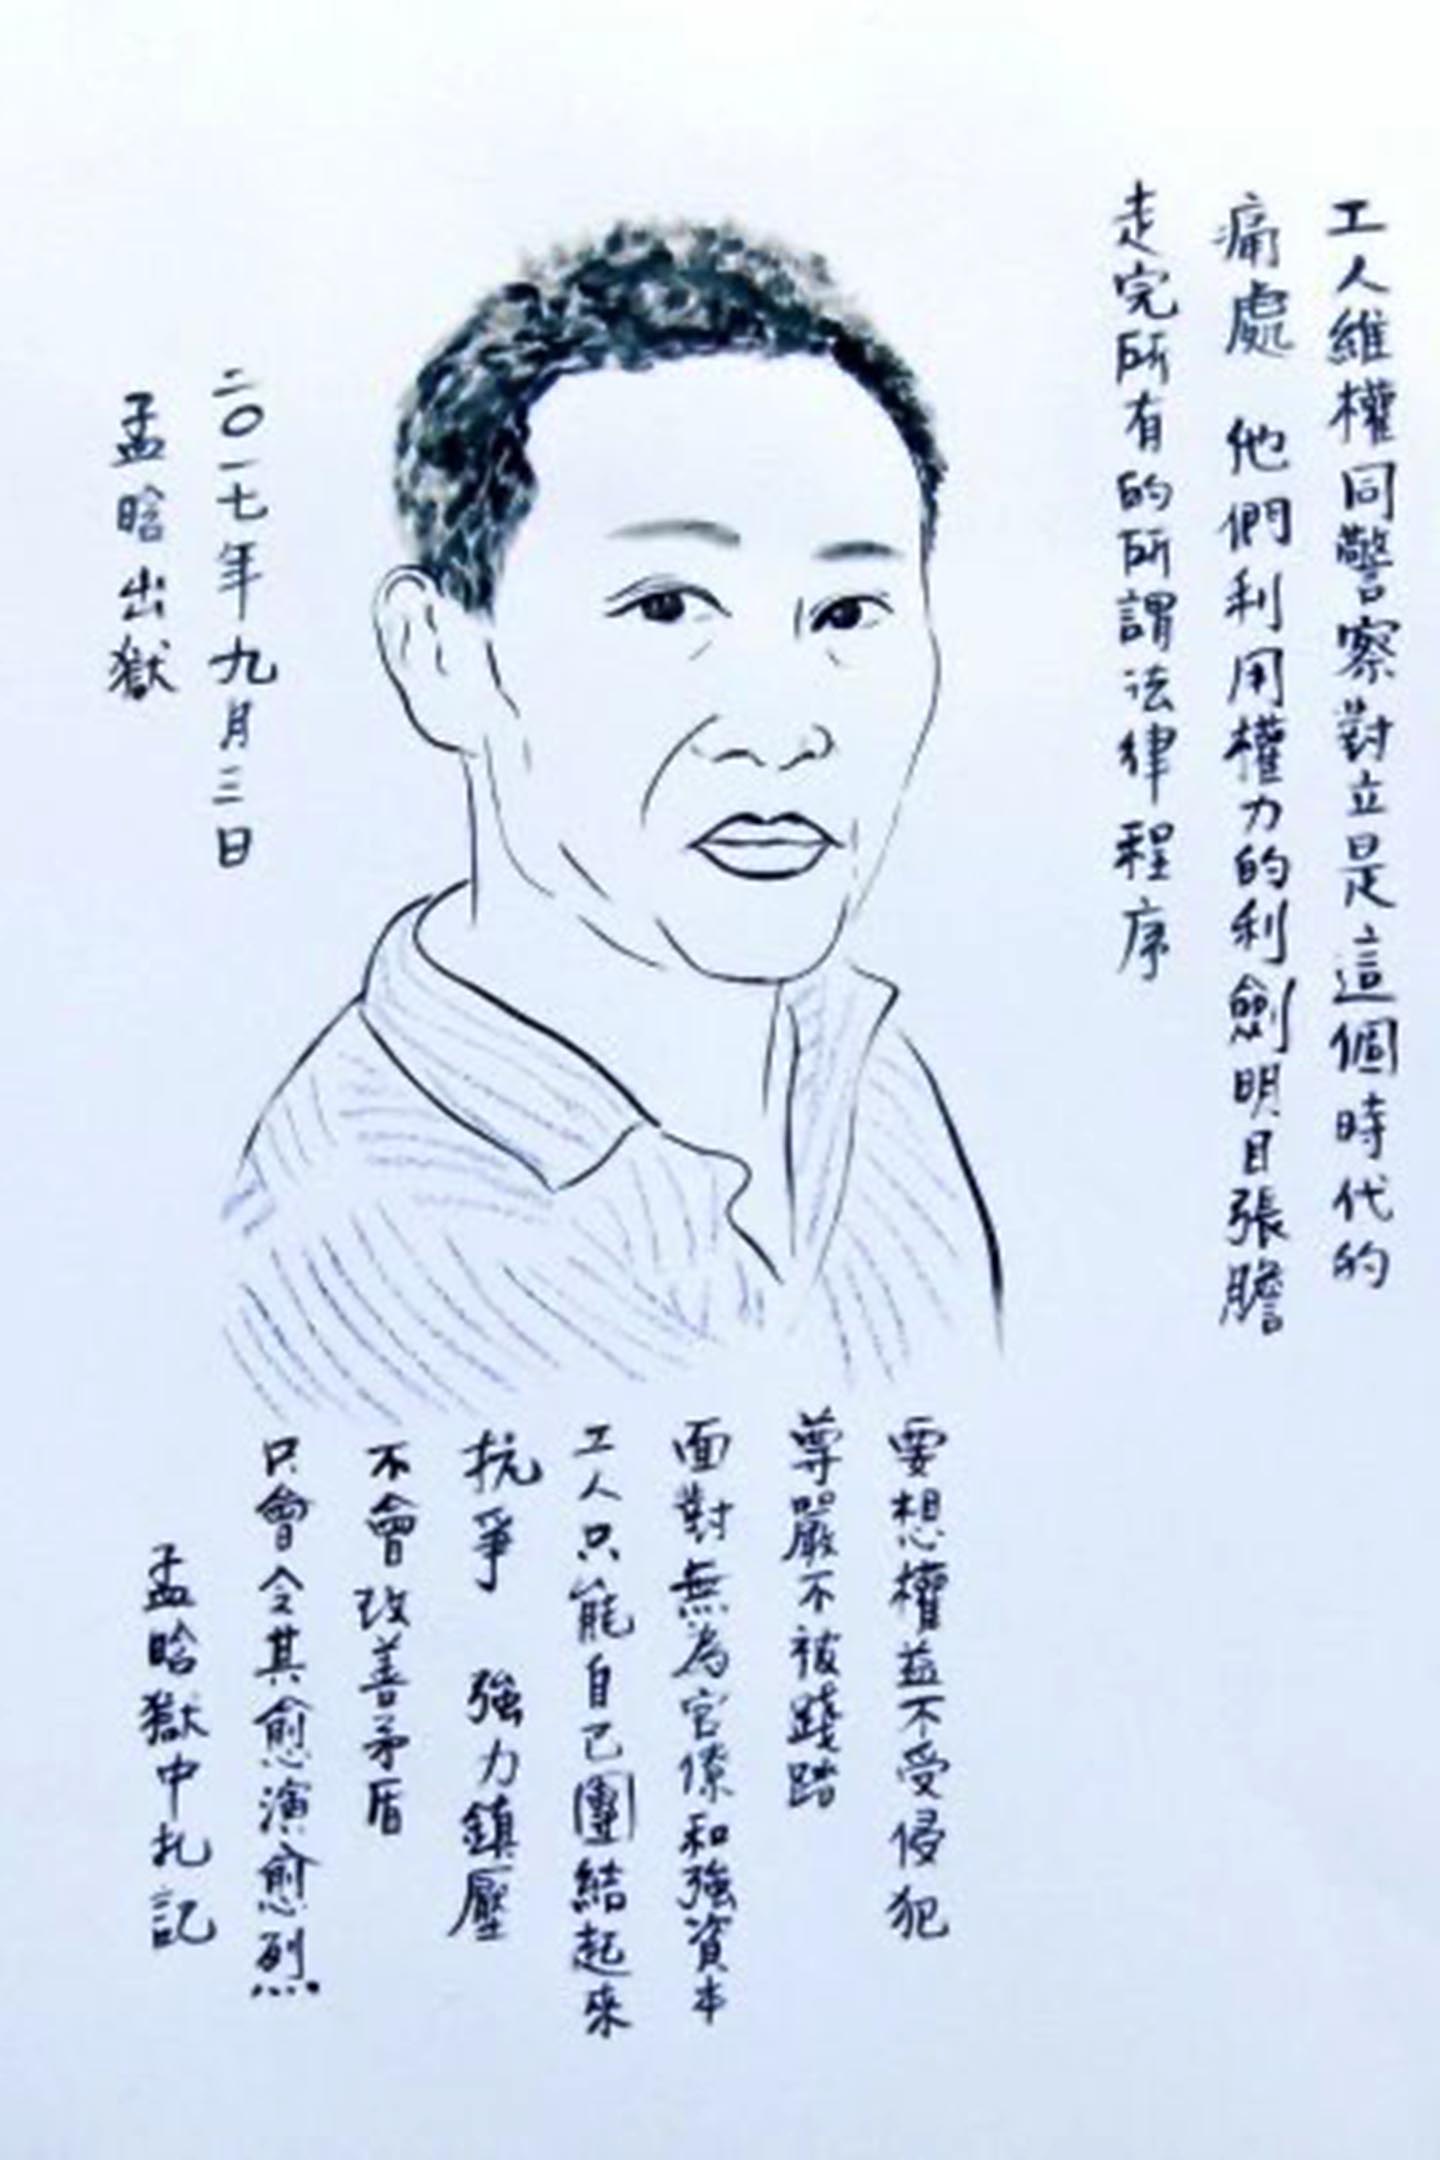 工人維權同警察對立是這個時代的
痛處 他們利用權力的利劍明目張膽
走完所有的所謂法律程序
要想權益不受侵犯
尊嚴不被踐踏
面對無為官僚和強資本
工人只能自己團結起來
抗爭 強力鎮壓
不會改善矛盾
只會令其愈演愈烈
孟晗獄中札記
二〇一七年九月三日
孟晗出獄